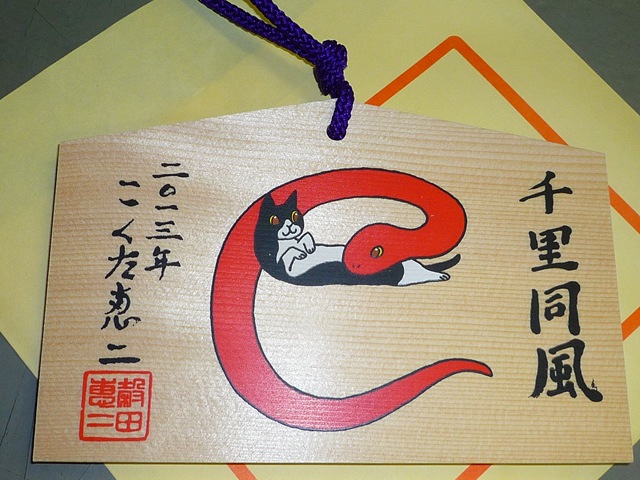 千里同風
二〇一三年
こくた恵二
穀田
恵二